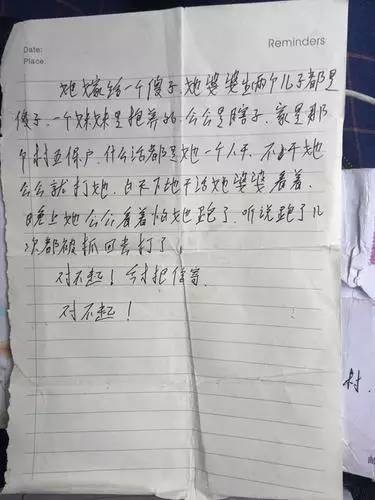 Date:
Reminders
Place:
她嫁给一个傻子,她婆婆生两个儿子都是
傻子,一个妹妹是抱养的,公公是瞎子,家是那
个村五保户,什么活都是她一个人干,不干她
公公就打她,白天下地干活她婆婆看着,
晚上她公公看着怕她跑了,听说跑了几
次都被抓回去打了
对不起!今才把信寄
对不起!
村.